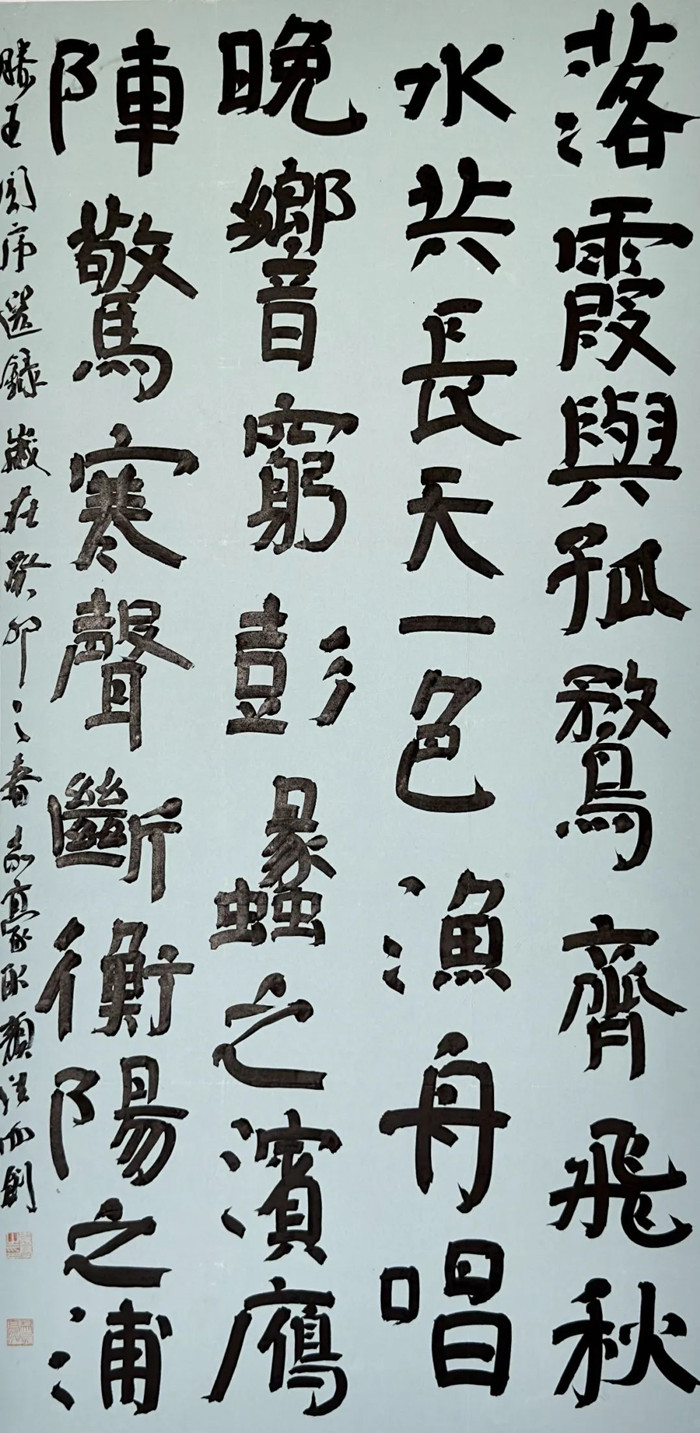 落霞與孤鶩齊飛秋
水共長天一色漁舟唱
晚響窮彭蠡之濱鴈
陣驚寒聲斷衡陽之浦
滕王閣序選錄歲在癸卯之春